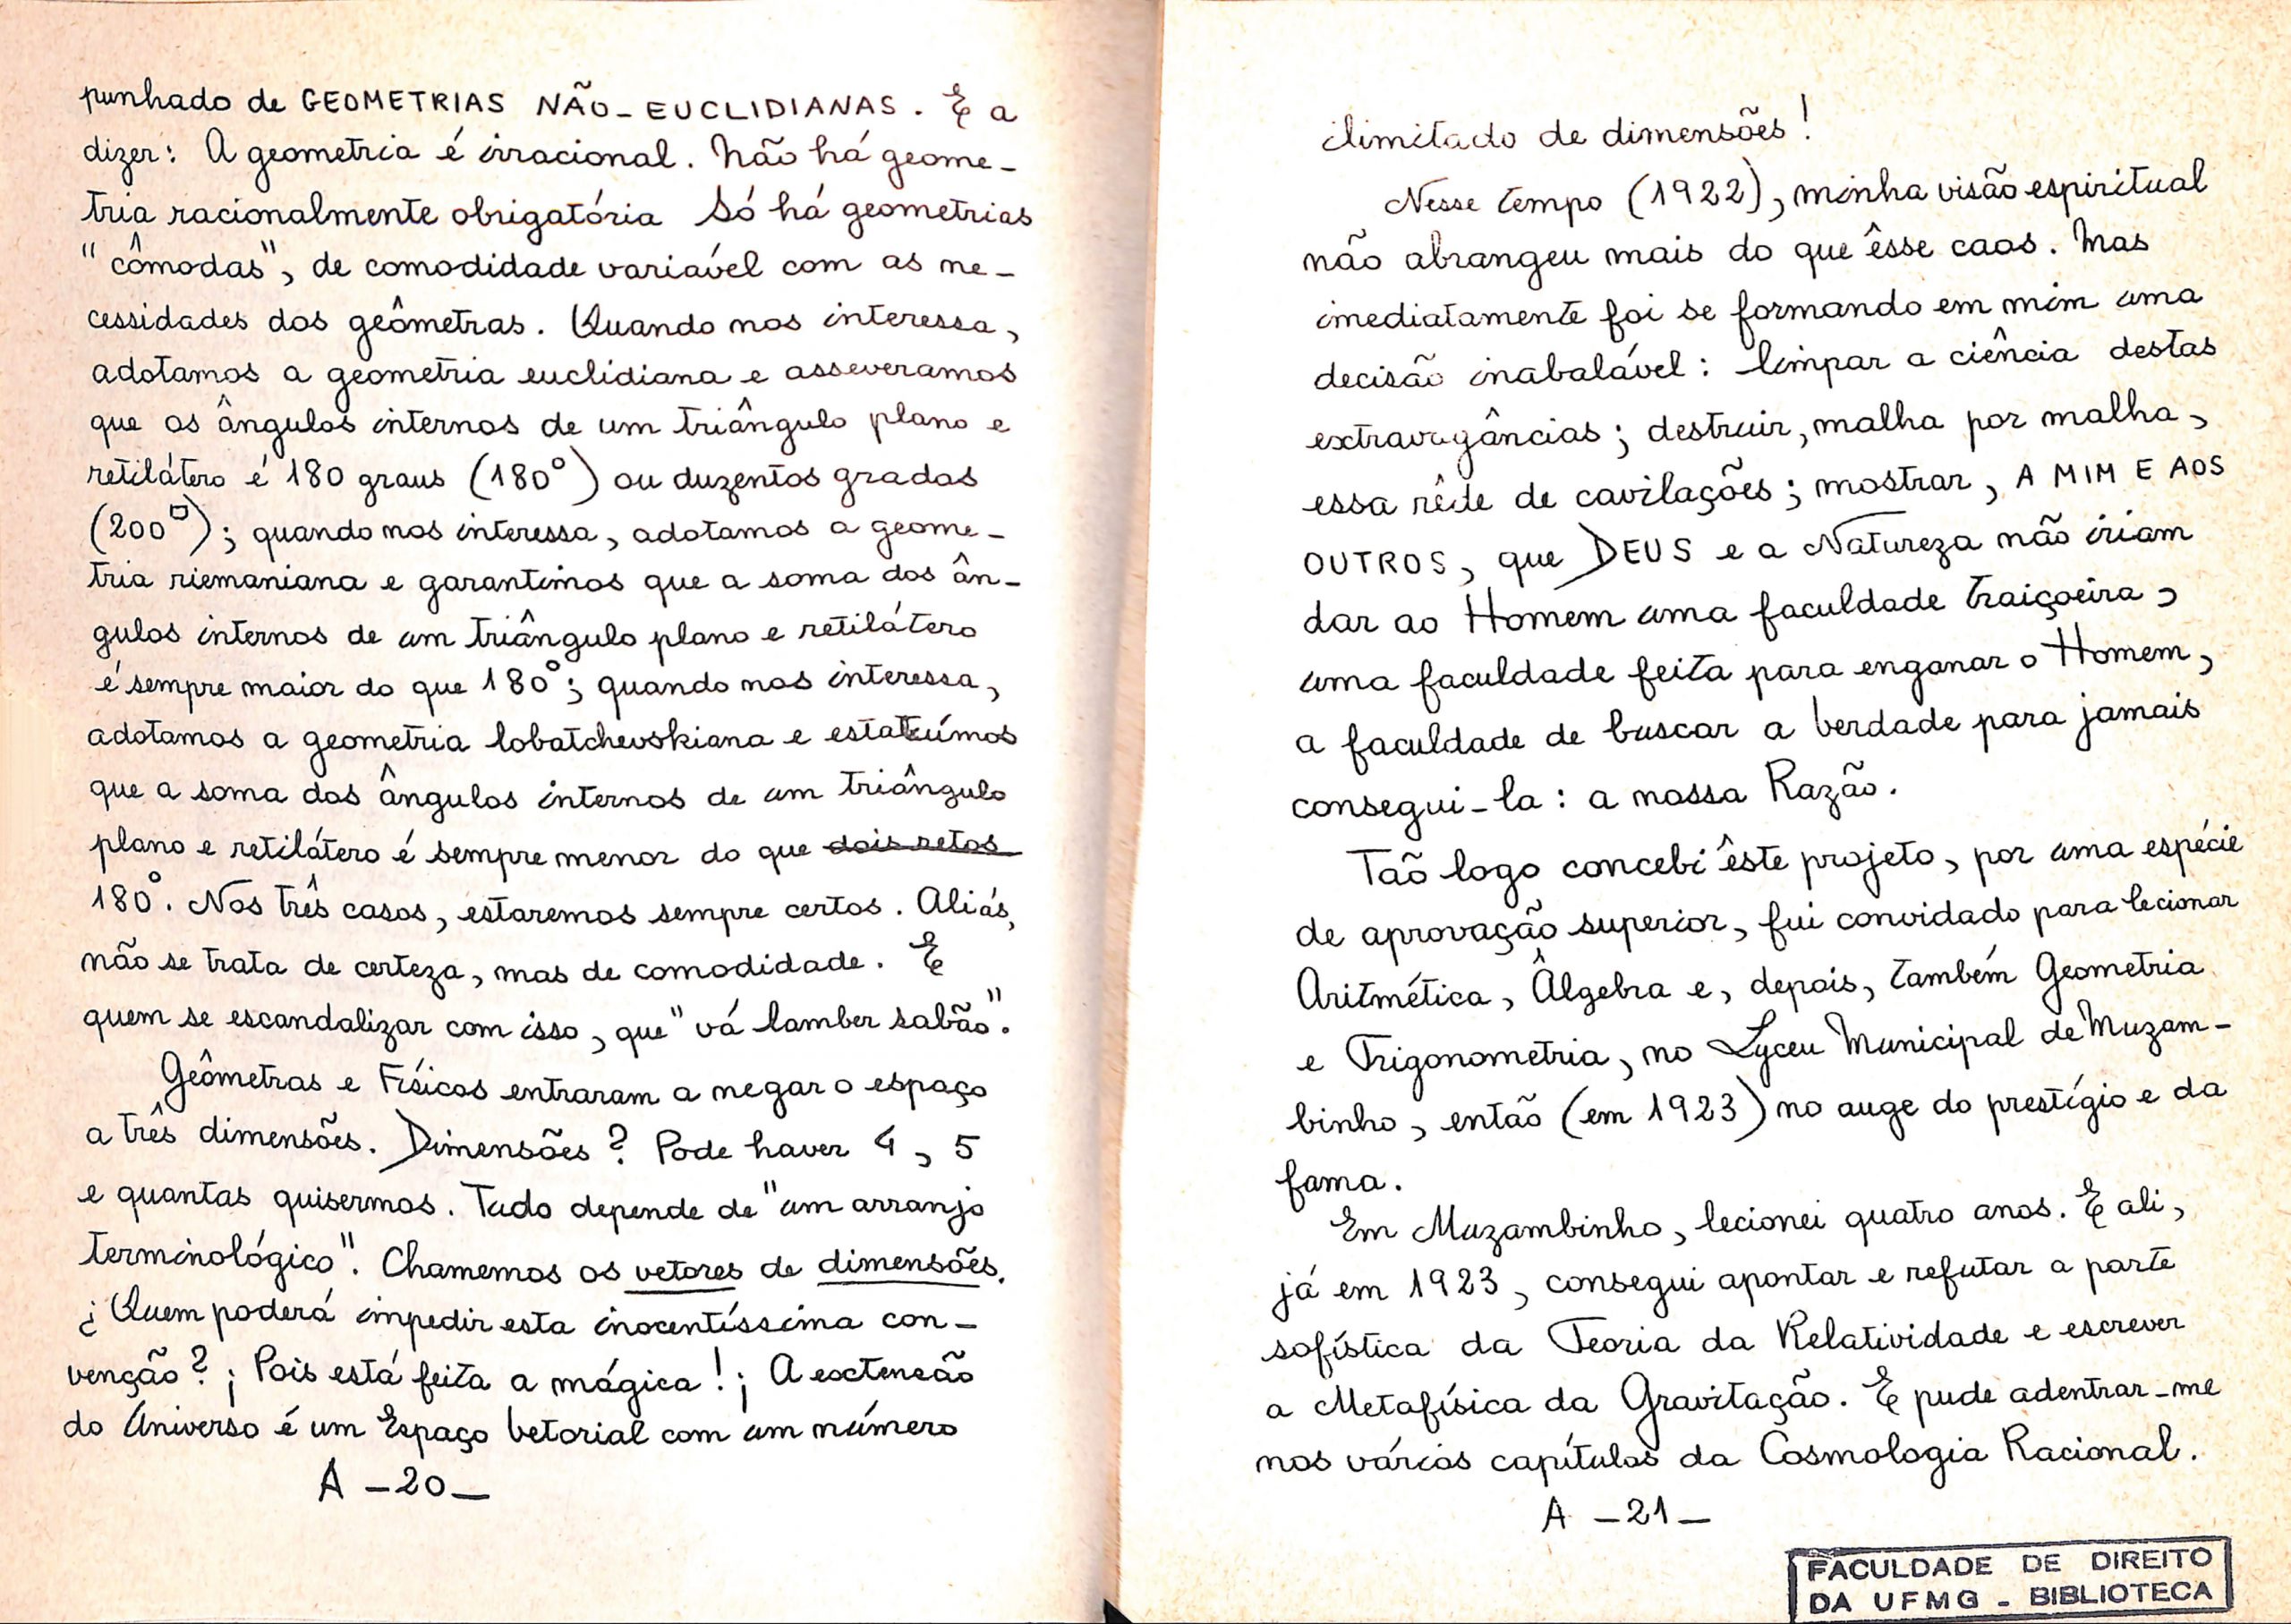 punhado de GEOMETRIAS NÃO-EUCLIDIANAS. E a
dizer: A geometria é irracional. Não há geome-
tria racionalmente obrigatória Só há geometrias
"cômodas", de comodidade variável com as ne-
cessidades dos geômetras. Quando nos interessa,
adotamos a geometria euclidiana e asseveramos
que os ângulos internos de um triângulo plano e
retilátero é 180 graus (180°) ou duzentos grados
(200□); quando nos interessa, adotamos a geome-
tria riemaniana e garantimos que a soma dos ân-
gulos internos de um triângulo plano e retilátero
é sempre maior do que 180°; quando nos interessa,
adotamos a geometria lobatchevskiana e estatuímos
que a soma dos ângulos internos de um triângulo
plano e retilátero é sempre menor do que dois retos
180°. Nos três casos, estaremos sempre certos. Aliás,
não se trata de certeza, mas de comodidade. E
quem se escandalizar com isso, que "vá lamber sabão".
Geômetras e Físicos entraram a negar o espaço
a três dimensões. Dimensões? Pode haver 4, 5
e quantas quisermos. Tudo depende de "um arranjo
terminológico". Chamemos os vetores de dimensões.
¿Quem poderá impedir esta inocentíssima con-
venção? ¡Pois está feita a mágica! ¡A extensão
do Universo é um Espaço Vetorial com um número
A -20-
ilimitado de dimensões!
Nesse tempo (1922), minha visão espiritual
não abrangeu mais do que êsse caos. Mas
imediatamente foi se formando em mim uma
decisão inabalável: limpar a ciência destas
extravagâncias; destruir, malha por malha,
essa rêde de cavilações; mostrar, A MIM E AOS
OUTROS, que DEUS e a Natureza não iriam
dar ao Homem uma faculdade traiçoeira,
uma faculdade feita para enganar o Homem,
a faculdade de buscar a Verdade para jamais
consegui-la: a nossa Razão.
Tão logo concebi êste projeto, por uma espécie
de aprovação superior, fui convidado para lecionar
Aritmética, Álgebra e, depois, também Geometria
e Trigonometria, no Lyceu Municipal de Muzam-
binho, então (em 1923) no auge do prestígio e da
fama.
Em Muzambinho, lecionei quatro anos. E ali,
já em 1923, consegui apontar e refutar a parte
sofística da Teoria da Relatividade e escrever
a Metafísica da Gravitação. E pude adentrar-me
nos vários capítulos da Cosmologia Racional.
A -21-
FACULDADE DE DIREITO
DA UFMG - BIBLIOTECA